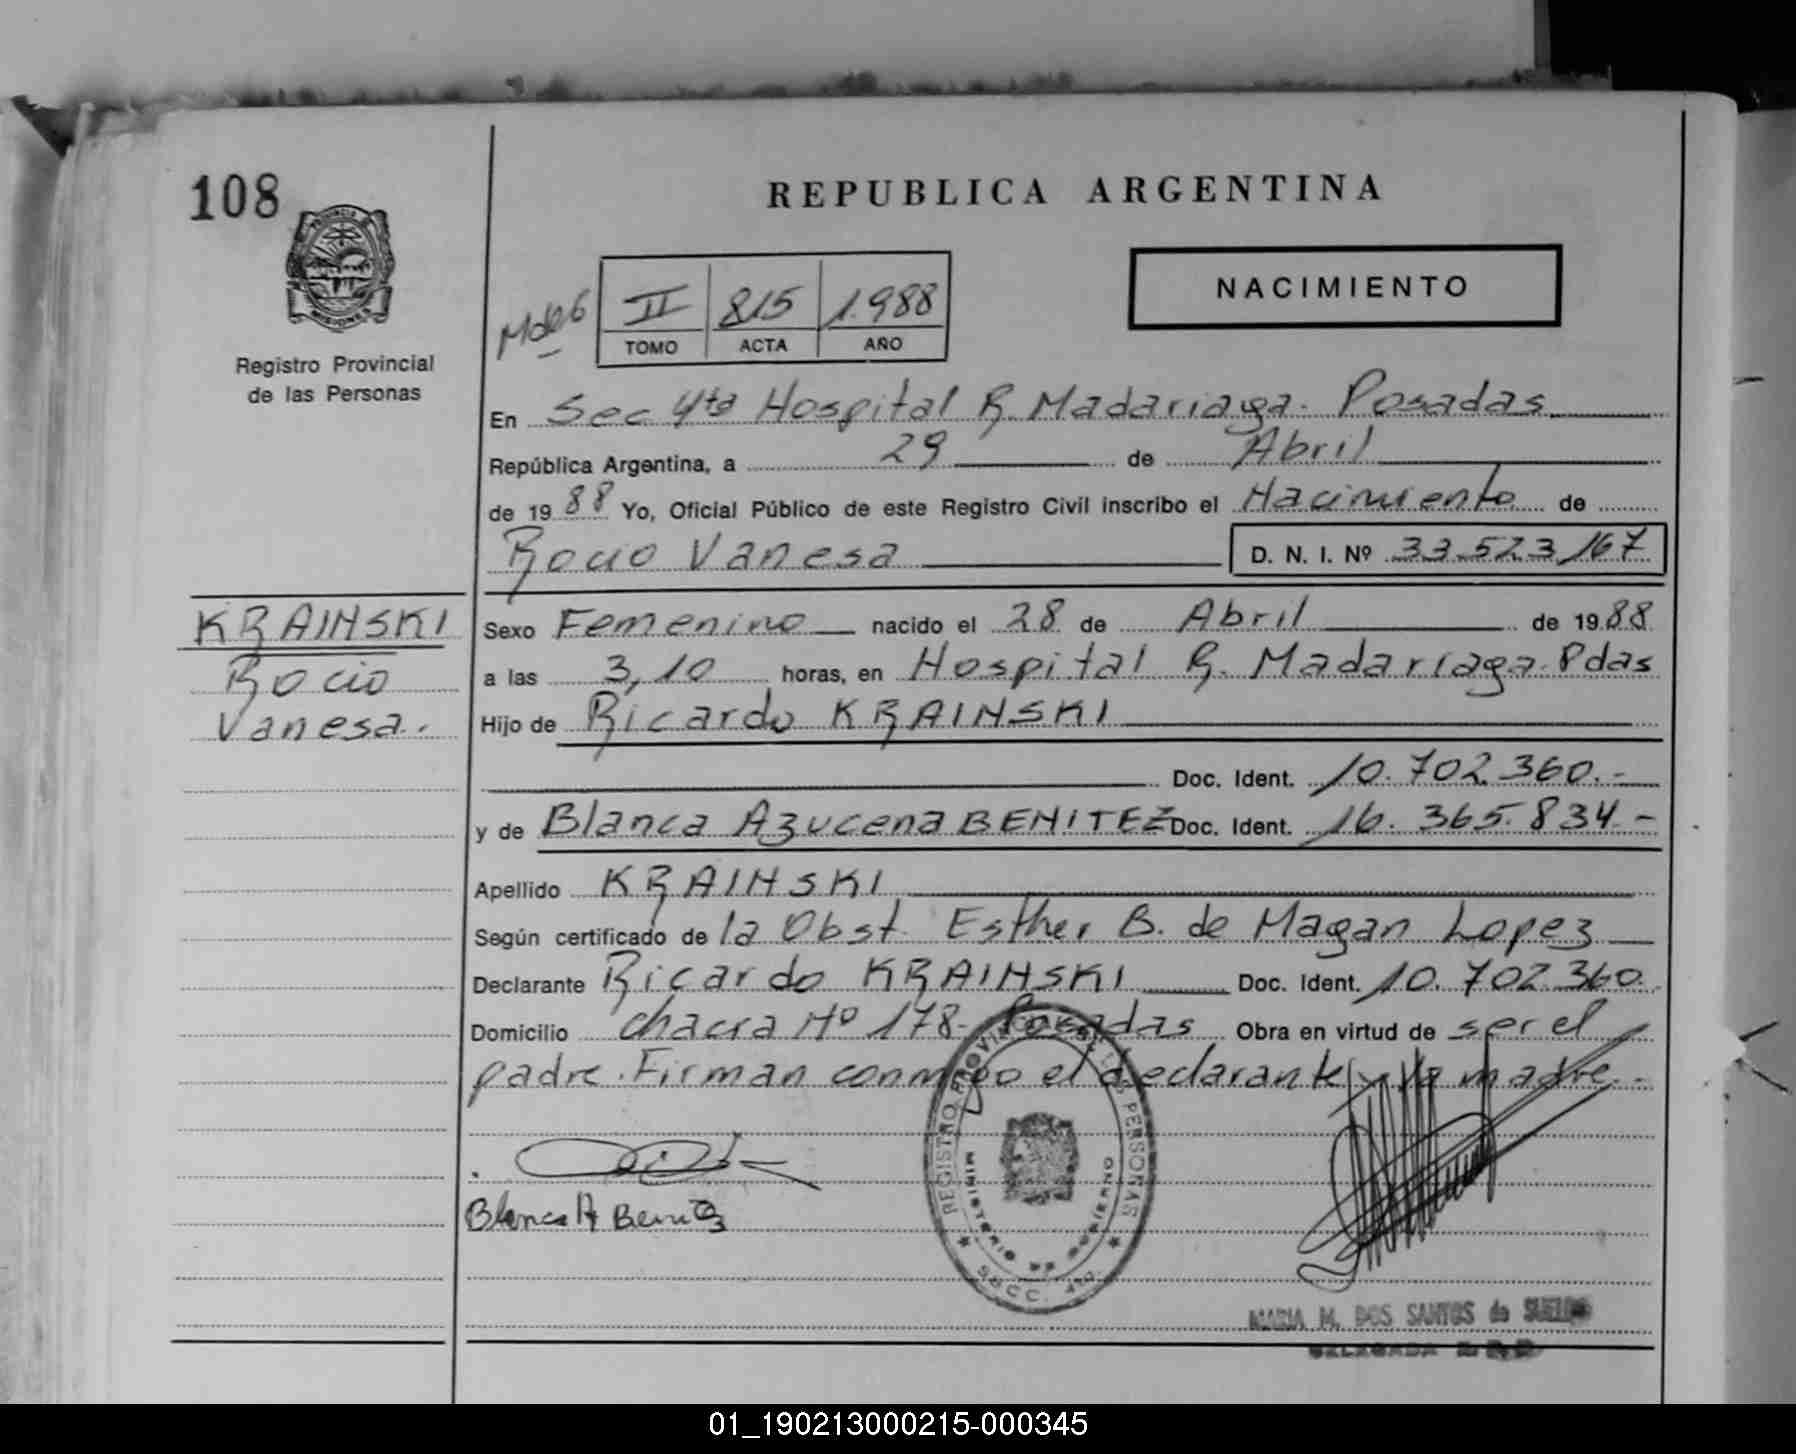 108
REPUBLICA ARGENTINA
PROVINCIA DE
MISIONES
Registro Provincial
de las Personas
II 815 1.988
TOMO ACTA AÑO
NACIMIENTO
En Sec 4ta Hospital R. Madariaga. Posadas
República Argentina, a 29 de Abril
de 1988 Yo, Oficial Público de este Registro Civil inscribo el Nacimiento de
Rocio Vanesa D. N. I. Nº 33.523.167
KRAINSKI
Rocio
Vanesa.
Sexo Femenino nacido el 28 de Abril de 1988
a las 3,10 horas, en Hospital R. Madariaga. Pdas
Hijo de Ricardo KRAINSKI
Doc. Ident. 10.702.360.-
y de Blanca Azucena BENITEZ Doc. Ident. 16.365.834.-
Apellido KRAINSKI
Según certificado de la Obst. Esther B. de Magan Lopez
Declarante Ricardo KRAINSKI Doc. Ident. 10.702.360.
Domicilio chacra Nº 178- Posadas Obra en virtud de ser el
padre. Firman conmigo el declarante y la madre.-
Blanca A Benitez
REGISTRO PROVINCIAL DE LAS PERSONAS
MINISTERIO DE GOBIERNO
SECC. 4ta.
MARIA M. DOS SANTOS de SUELDO
DELEGADA
01_190213000215-000345